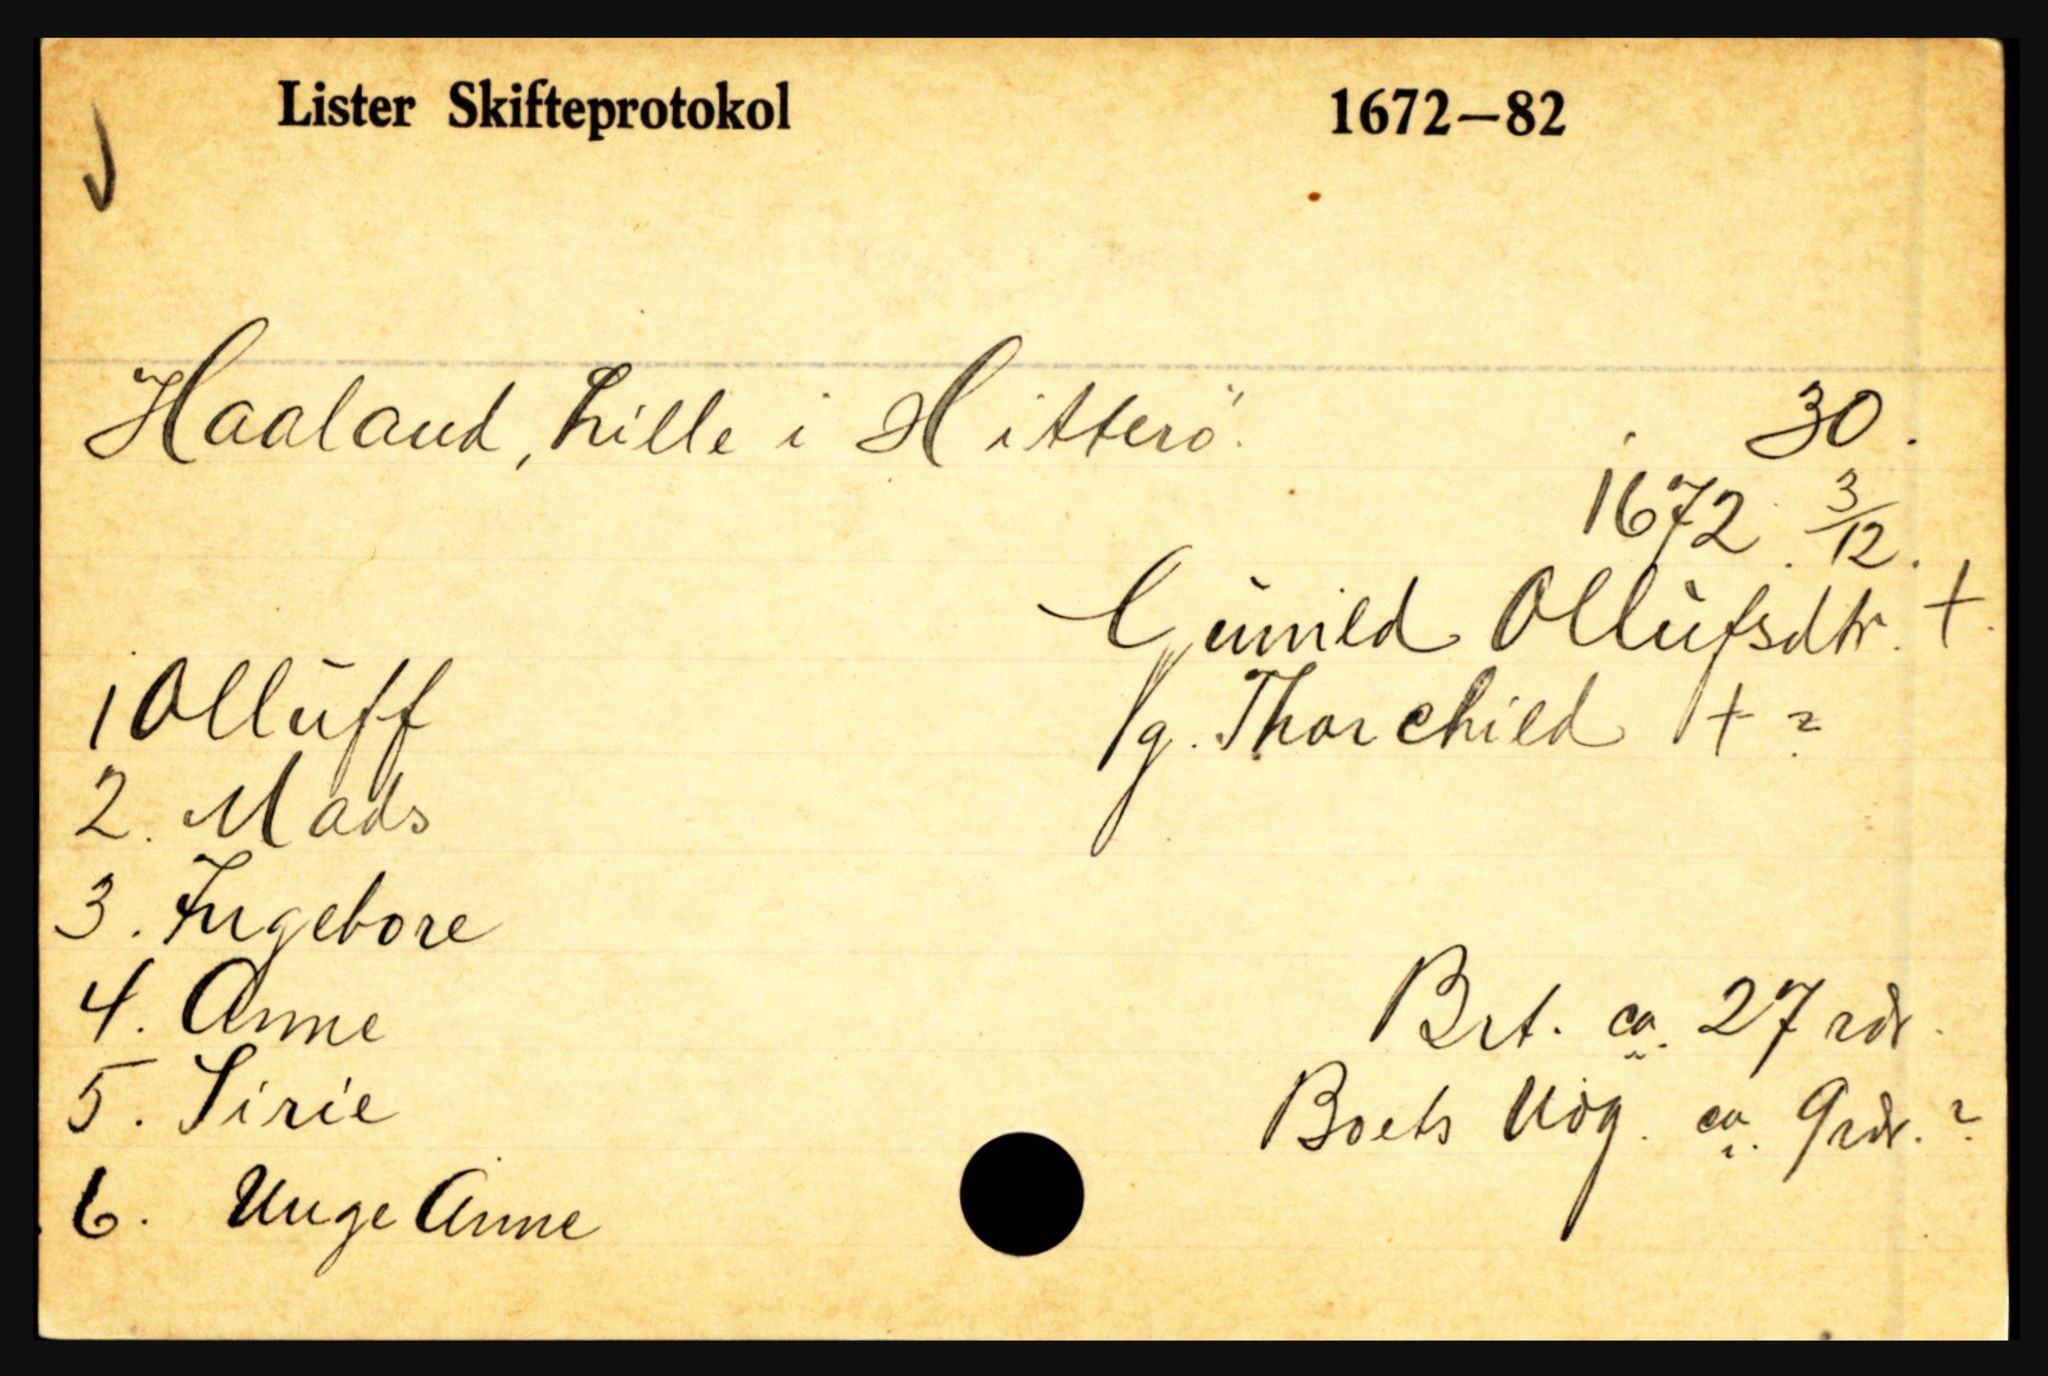 Lister Skifteprotokol 1672—82
Haaland, Lille i Hitterö. 30.
1672. 3/12.
Gúnild Ollúfsdtr. +.
g. Thorchild + ?
1 Ollúff
2. Mads
3. Ingebore
4. Anne
5. Sirie
6. Unge Anne
Brt. ca. 27 rdr.
Boets ca. 9 rdr. ?